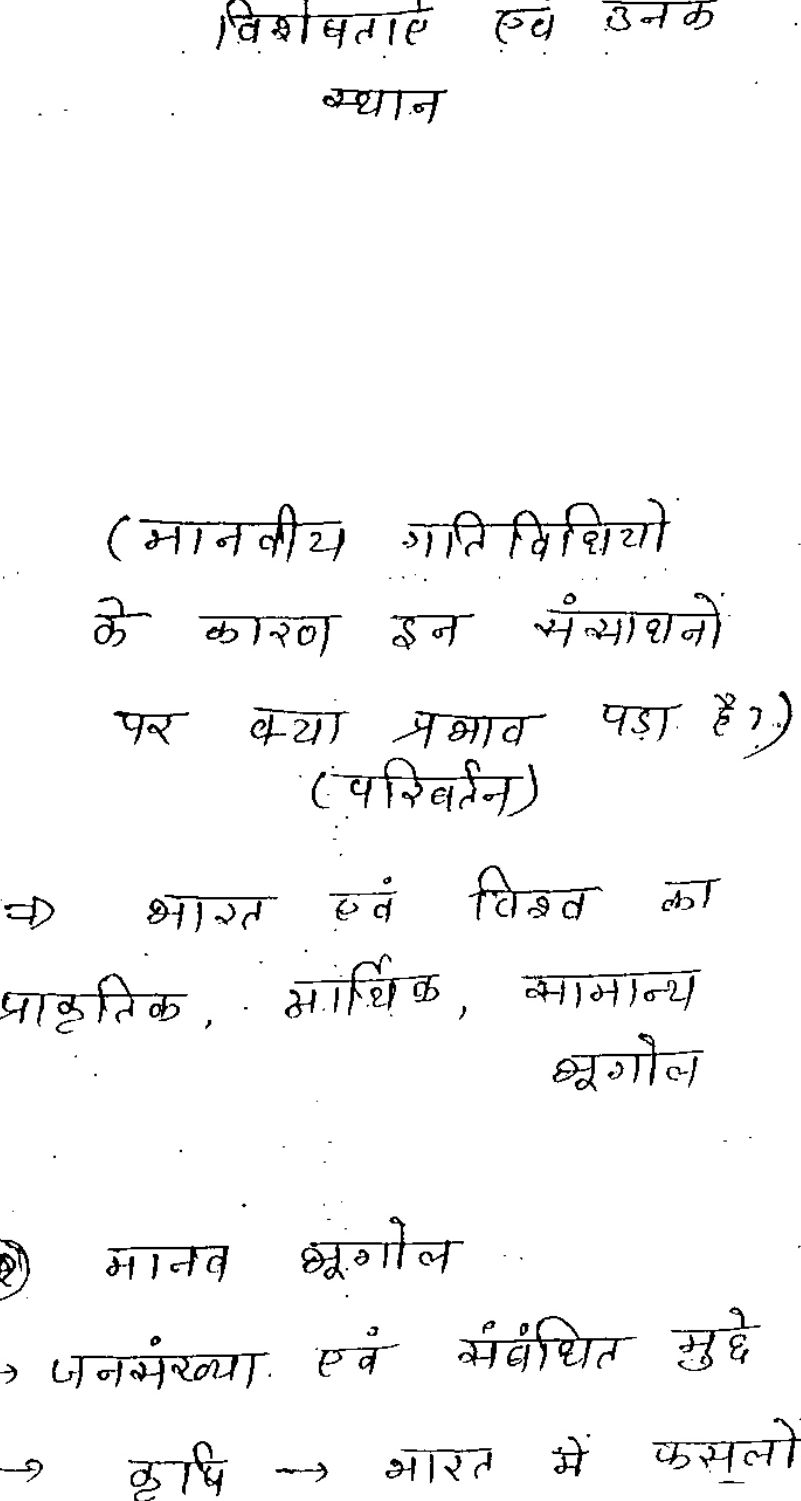 विशेषताएं एवं उनके
स्थान
(मानवीय गतिविधियों
के कारण इन संसाधनों
पर क्या प्रभाव पड़ा है?)
(परिवर्तन)
⇒ भारत एवं विश्व का
प्राकृतिक, आर्थिक, सामान्य
भूगोल
② मानव भूगोल
→ जनसंख्या एवं संबंधित मुद्दे
→ कृषि → भारत में फसलों